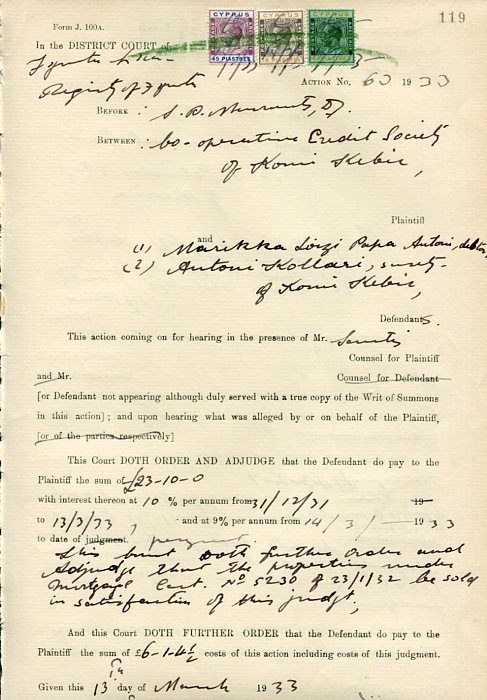 119
Form J. 100A.
CYPRUS CYPRUS CYPRUS
45 PIASTRES PIASTRES PIASTRES
In the DISTRICT COURT of
Registry of
ACTION No. 63 1933
BEFORE :
BETWEEN : Co-operative Credit Society
of Komi Kebir,
Plaintiff
and
(1) Marikka Loizi Papa Antoni, debtor,
(2) Antoni Kollari, surety,
of Komi Kebir,
Defendants.
This action coming on for hearing in the presence of Mr.
Counsel for Plaintiff
and Mr. Counsel for Defendant
[or Defendant not appearing although duly served with a true copy of the Writ of Summons
in this action]; and upon hearing what was alleged by or on behalf of the Plaintiff,
[or of the parties respectively]
This Court DOTH ORDER AND ADJUDGE that the Defendant do pay to the
Plaintiff the sum of £23-10-0
with interest thereon at 10 % per annum from 31/12/31 19
to 13/3/33, and at 9% per annum from 14/3/ 1933
to date of judgment. payment.
This Court doth further order and
Adjudge that the properties under
Mortgage Cert. No 5230 of 23/1/32 be sold
in satisfaction of this judgt,
And this Court DOTH FURTHER ORDER that the Defendant do pay to the
Plaintiff the sum of £6-1-4½ costs of this action including costs of this judgment.
Given this 13 day of March 1933